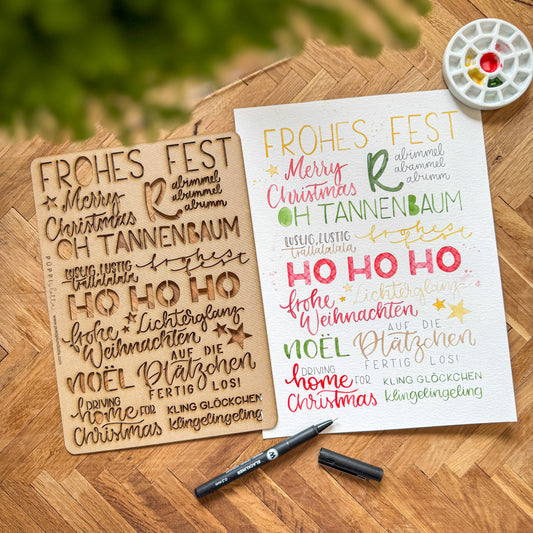 FROHES FEST
Merry
Christmas
R
abimmel
abammel
abumm
OH TANNENBAUM
LUSTIG, LUSTIG
trallalalala
frohes
fest
HO HO HO
frohe
Weihnachten
Lichterglanz
NOËL
AUF DIE
Plätzchen
FERTIG LOS!
DRIVING
home FOR
Christmas
KLING GLÖCKCHEN
klingelingeling
FROHES FEST
Merry
Christmas
R
abimmel
abammel
abumm
OH TANNENBAUM
LUSTIG, LUSTIG
trallalalala
frohes
fest
HO HO HO
frohe
Weihnachten
Lichterglanz
NOËL
AUF DIE
Plätzchen
FERTIG LOS!
DRIVING
home FOR
Christmas
KLING GLÖCKCHEN
klingelingeling
BLACKLINER